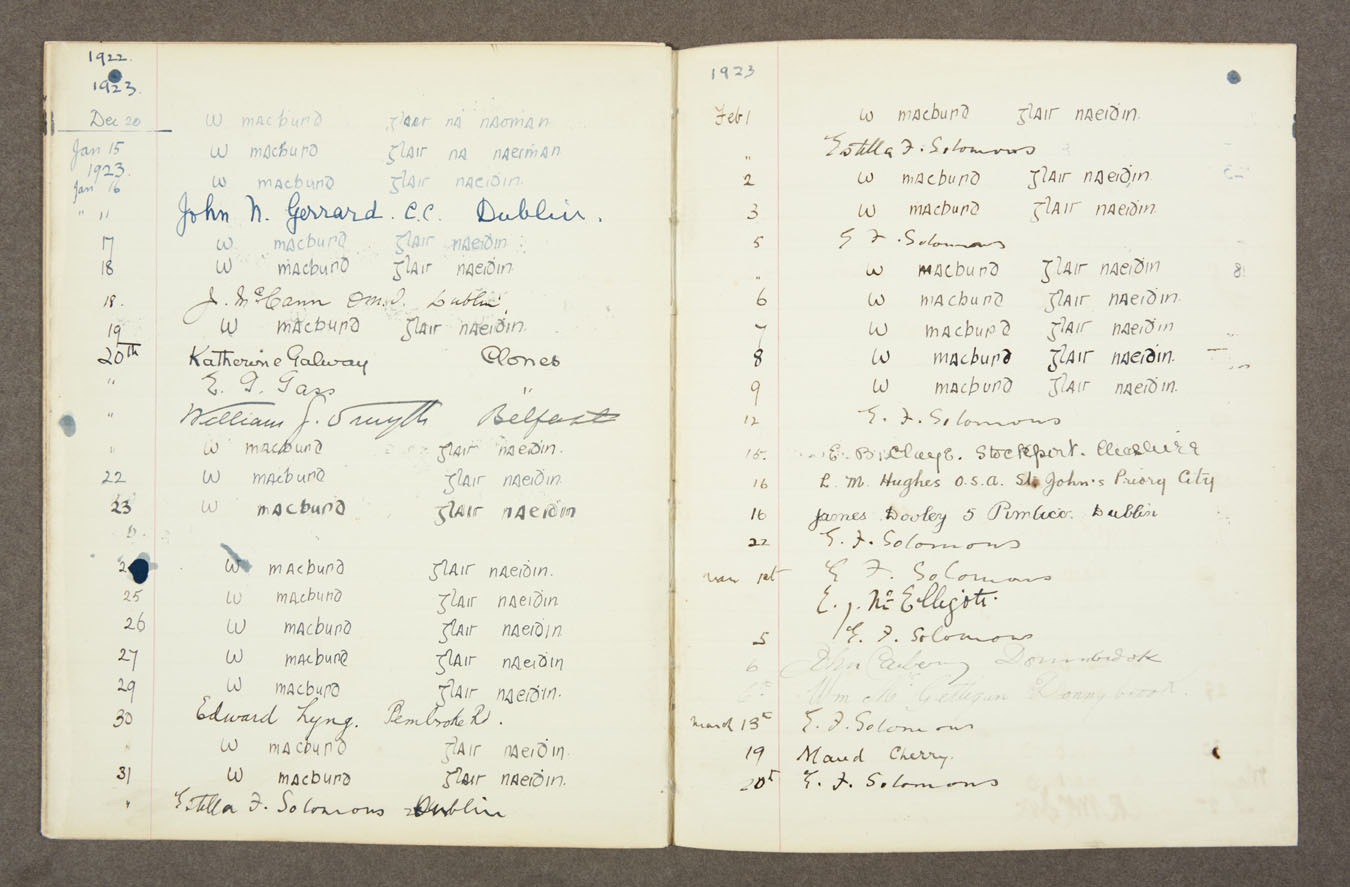 1922.
1923.
Dec 20 W macbupd ʒlair na naoman
Jan 15 W macbupd ʒlair na naeiman
1923.
Jan 16 W macbupd ʒlair naeiḋin.
" " John N. Gerrard. C.C. Dublin.
17 W macbupd ʒlair naeiḋin.
18 W macbupd ʒlair naeiḋin.
18. J. McCann Dublin.
19 W macbupd ʒlair naeiḋin.
20th Katherine Galway Clones
" E. G. Gass "
" William J. Smyth Belfast
" W macbupd ʒlair naeiḋin.
22 W macbupd ʒlair naeiḋin.
23 W macbupd ʒlair naeiḋin
W macbupd ʒlair naeiḋin.
25 W macbupd ʒlair naeiḋin
26 W macbupd ʒlair naeiḋin
27 W macbupd ʒlair naeiḋin
29 W macbupd ʒlair naeiḋin.
30 Edward Lyng. Pembroke Rd.
" W macbupd ʒlair naeiḋin.
31 W macbupd ʒlair naeiḋin.
" Estella F. Solomons Dublin
1923
Feb 1 W macbupd ʒlair naeiḋin.
" Estella F. Solomons
2 W macbupd ʒlair naeiḋin.
3 W macbupd ʒlair naeiḋin.
5 E F. Solomons
" W macbupd ʒlair naeiḋin
6 W macbupd ʒlair naeiḋin.
7 W macbupd ʒlair naeiḋin
8 W macbupd ʒlair naeiḋin.
9 W macbupd ʒlair naeiḋin.
12 E. F. Solomons
15. E. B. Claye. Stockport. Cheshire
16 L. M. Hughes O.S.A. St. John's Priory City
16 James Dooley 5 Pimlico. Dublin
22 E. F. Solomons
Mar 1st E F. Solomons
E. J. McElligott.
5 E. F. Solomons
6 John Donnybrook
Wm Mc Gettigan Donnybrook.
March 13th E. F. Solomons
19 Maud Cherry.
20th E. F. Solomons